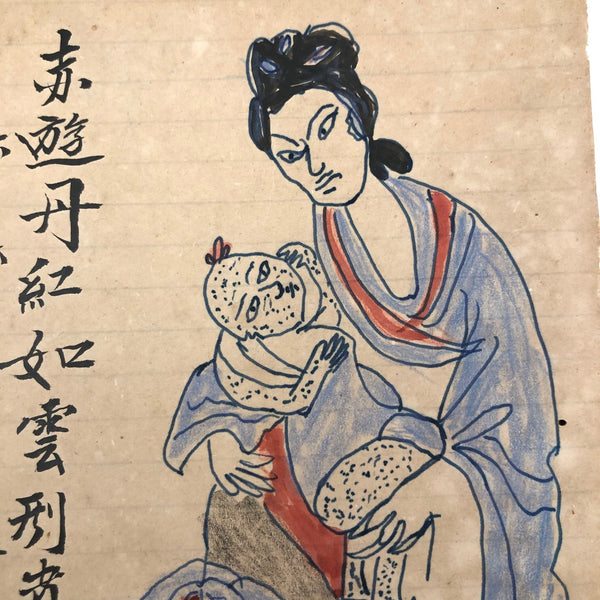 赤遊丹紅如雲刑